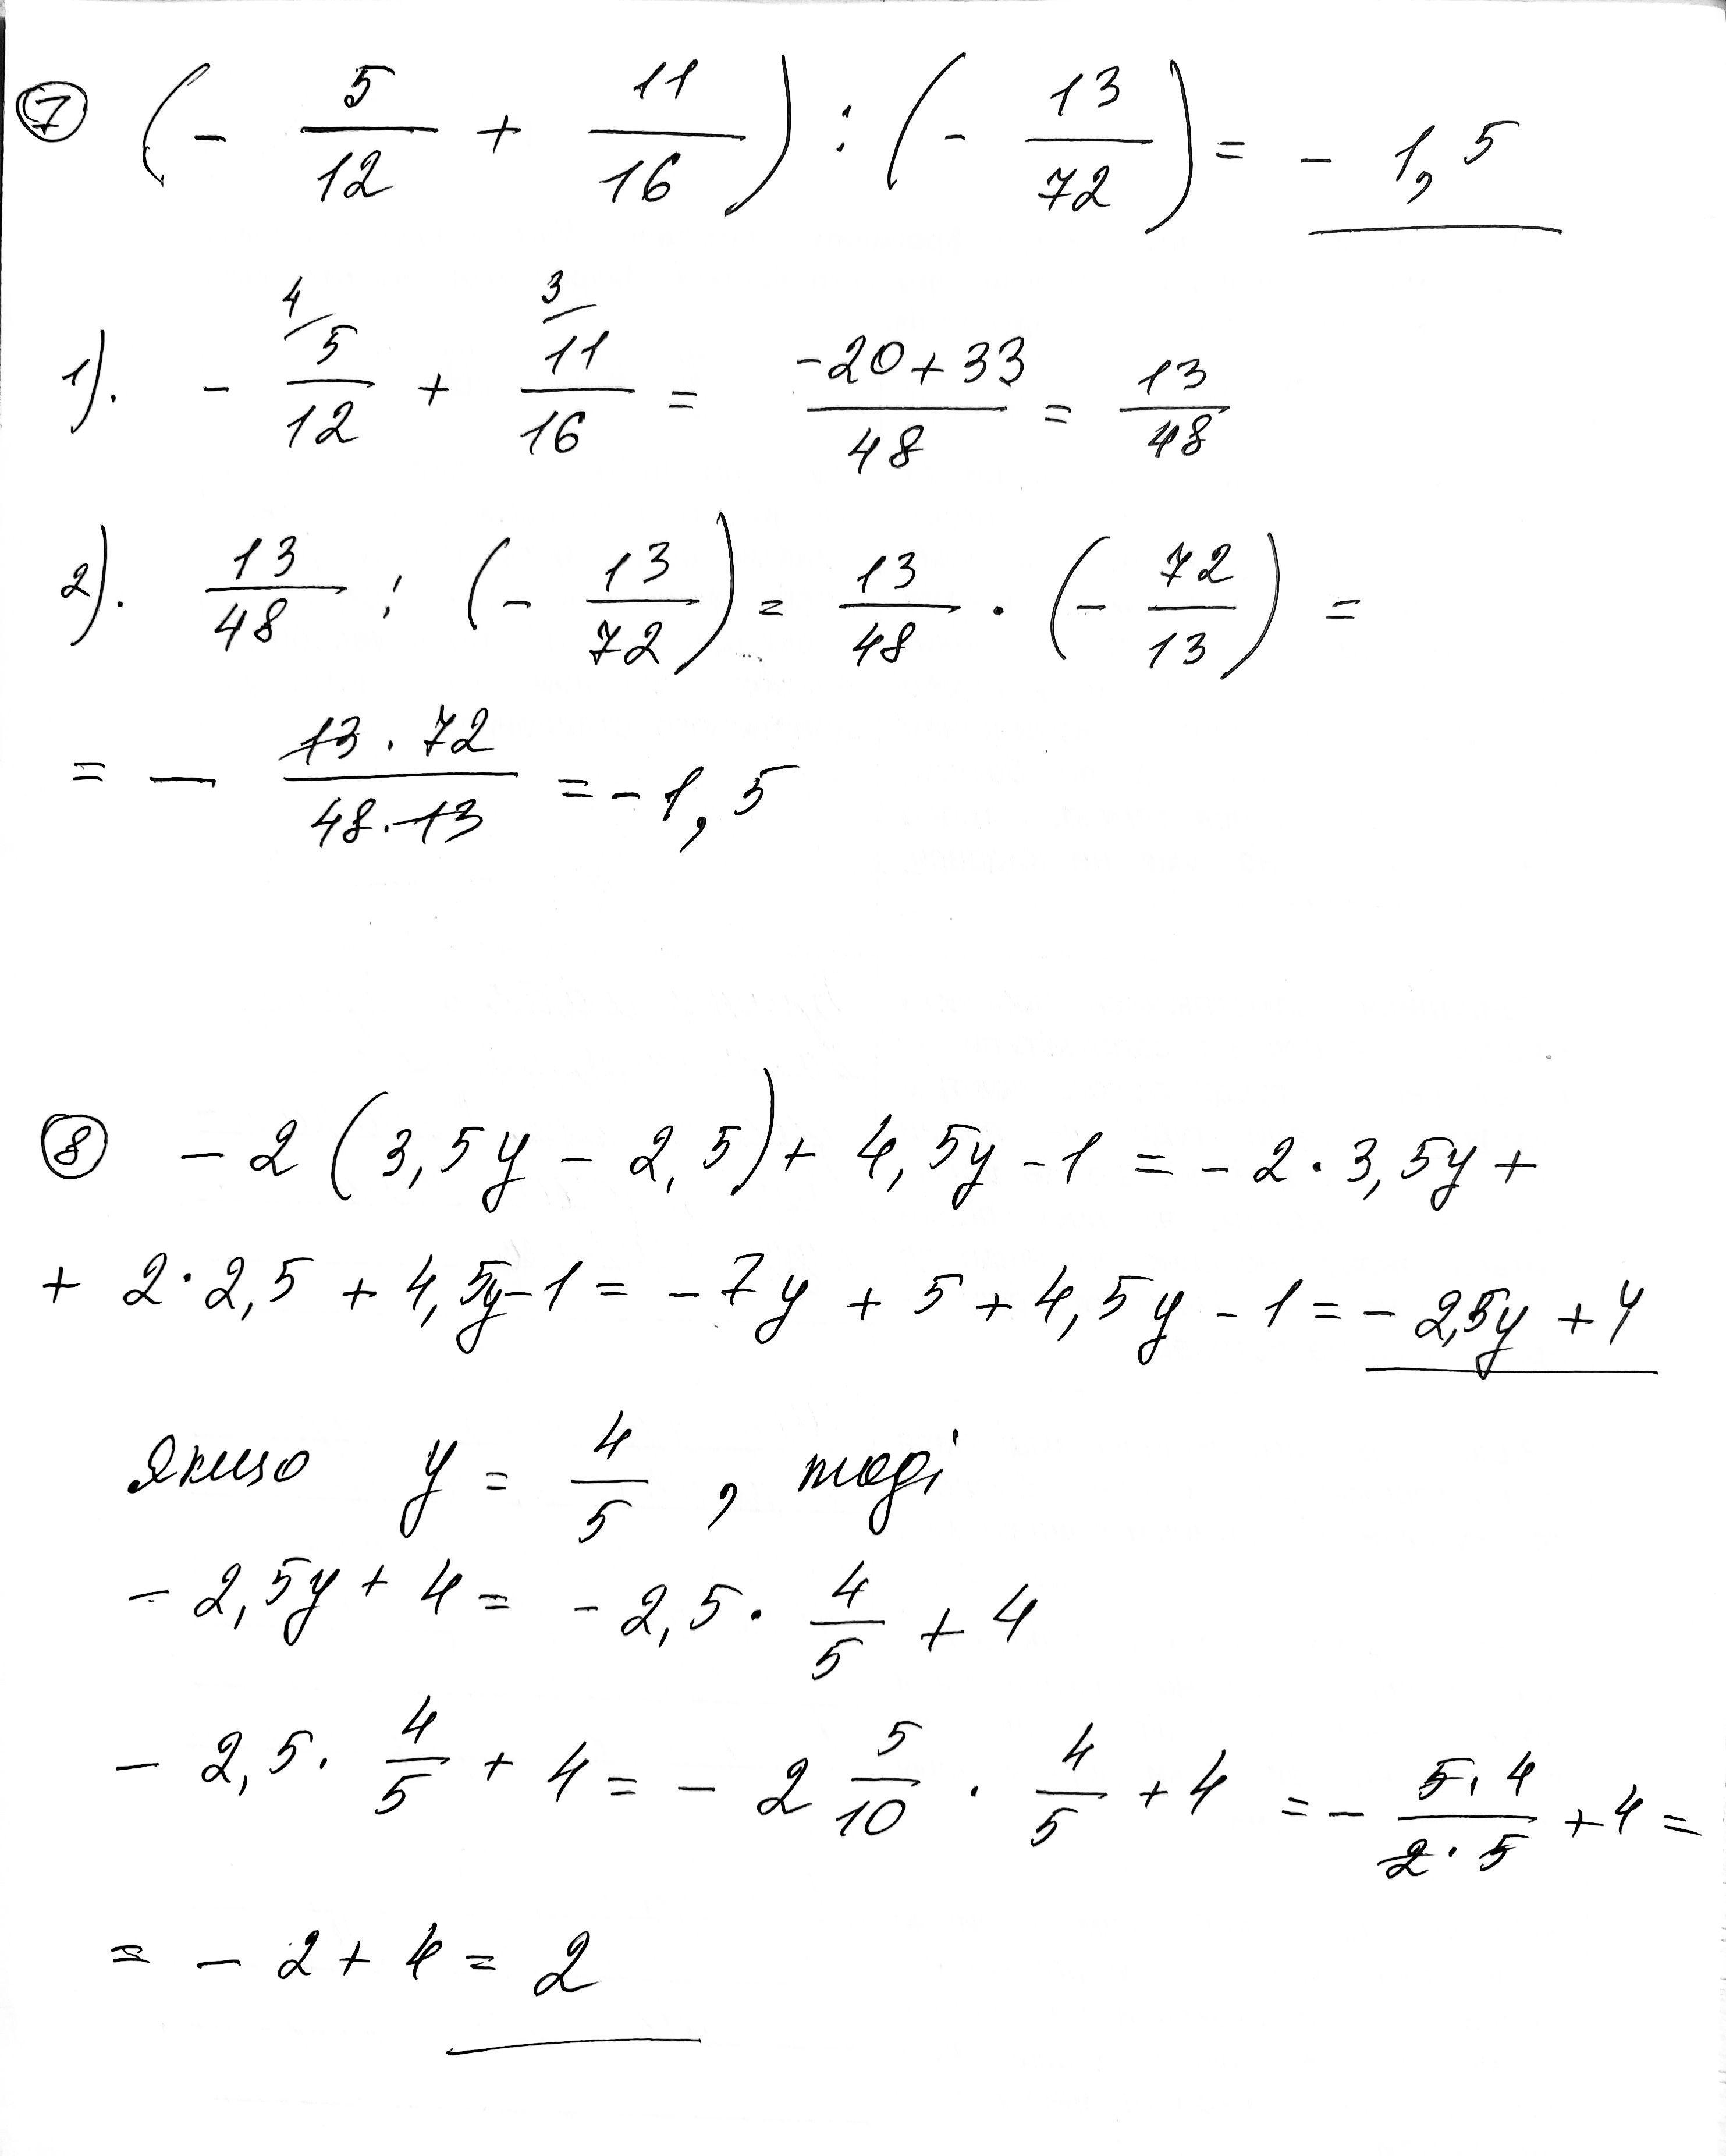 ⑦ (- 5/12 + 11/16) : (- 13/72) = - 1,5
1). - ⁴⁄5/12 + ³⁄11/16 = -20+33/48 = 13/48
2). 13/48 : (- 13/72) = 13/48 · (- 72/13) =
= - 13·72/48·13 = -1,5
⑧ -2(3,5y - 2,5) + 4,5y - 1 = -2·3,5y +
+ 2·2,5 + 4,5y-1 = -7y + 5 + 4,5y - 1 = -2,5y + 4
Якщо y = 4/5, тоді
-2,5y + 4 = -2,5 · 4/5 + 4
-2,5 · 4/5 + 4 = -2 5/10 · 4/5 + 4 = - 5·4/2·5 + 4 =
= -2 + 4 = 2